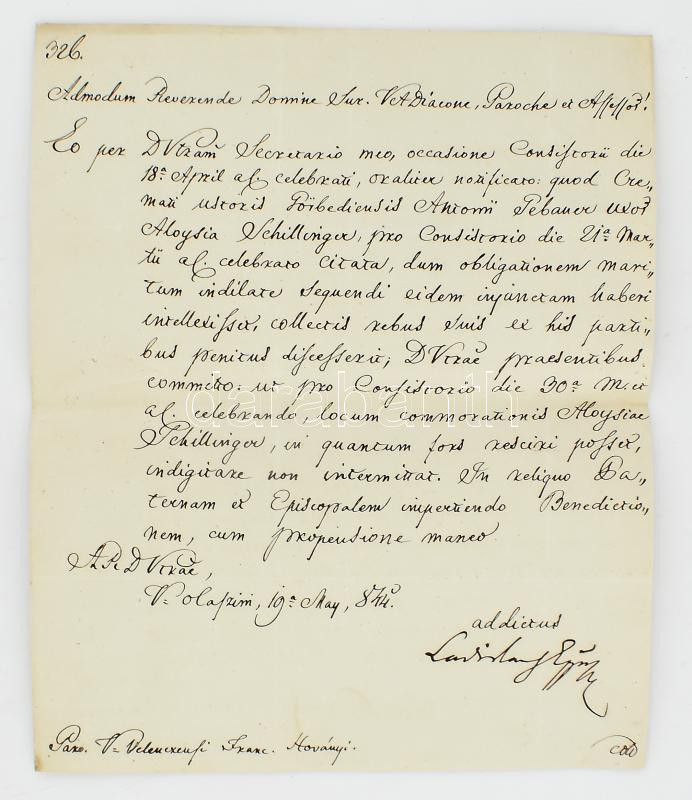 326.
Admodum Reverende Domine Sur. VADiacone, Paroche et Assessor!
Eo per DVtram Secretario meo, occasione Consistorii die
18a April a. c. celebrati, oraliter notificato: quod Cre„
mati ustoris Görbediensis Antonii Pebauer uxor
Aloysia Schillinger, pro Consistorio die 21a Mar„
tii a. c. celebrato citata, dum obligationem mari„
tum indilate sequendi eidem injunctam haberi
intellexisset, collectis rebus suis ex his parti„
bus penitus discesserit; DVtrae praesentibus
committo: ut pro Consistorio die 30a M. et
a. c. celebrando, locum commorationis Aloysiae
Schillinger, in quantum fors resciri posset,
indigitare non intermittat. In reliquo Pa„
ternam et Episcopalem impertiendo Benedictio„
nem, cum propensione maneo
DVtrae,
V. Olaszini, 19a May, 844.
addictus
Paro. V. Velenczensi Franc. Hoványi.
darabanth